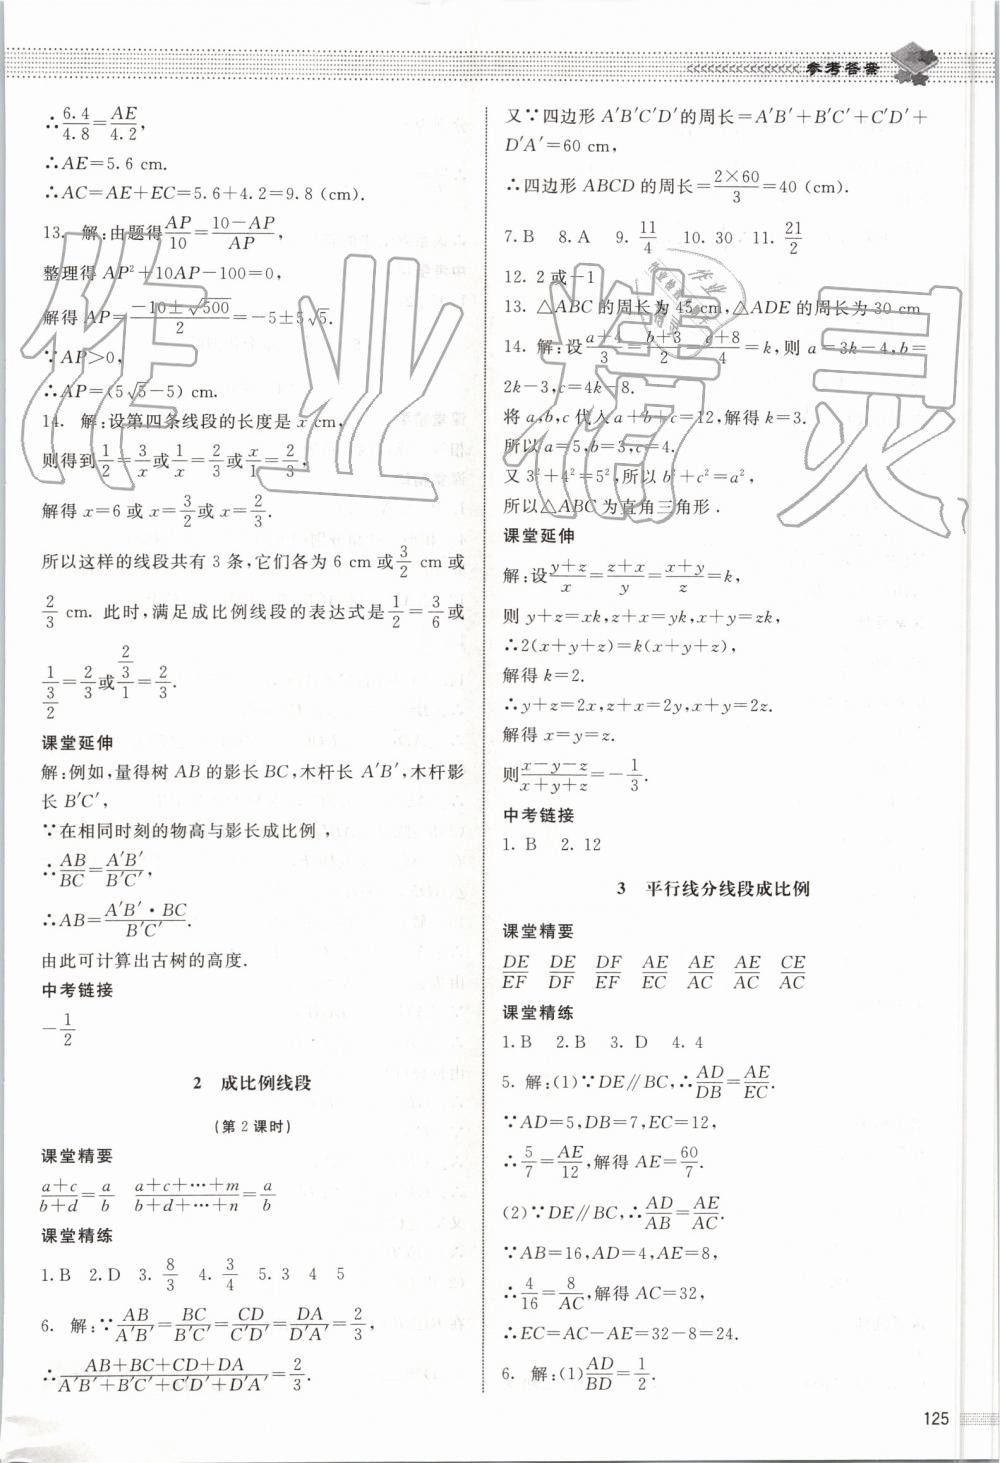 参考答案
∴6.4/4.8=AE/4.2,
∴AE=5.6 cm.
∴AC=AE+EC=5.6+4.2=9.8 (cm).
13. 解:由题得AP/10=(10-AP)/AP,
整理得 AP²+10AP-100=0,
解得 AP=(-10±√500)/2=-5±5√5.
∵AP>0,
∴AP=(5√5-5) cm.
14. 解:设第四条线段的长度是 x cm,
则得到1/2=3/x或1/x=2/3或x/1=2/3,
解得 x=6或 x=3/2或 x=2/3.
所以这样的线段共有 3 条,它们各为 6 cm 或3/2 cm 或
2/3 cm. 此时,满足成比例线段的表达式是1/2=3/6或
1/(3/2)=2/3或(2/3)/1=2/3.
课堂延伸
解:例如,量得树 AB 的影长 BC,木杆长 A′B′,木杆影
长 B′C′,
∵在相同时刻的物高与影长成比例,
∴AB/BC=A′B′/B′C′,
∴AB=A′B′·BC/B′C′.
由此可计算出古树的高度.
中考链接
-1/2
2 成比例线段
(第 2 课时)
课堂精要
(a+c)/(b+d)=a/b (a+c+…+m)/(b+d+…+n)=a/b
课堂精练
1. B 2. D 3. 8/3 4. 3/4 5. 3 4 5
6. 解:∵AB/A′B′=BC/B′C′=CD/C′D′=DA/D′A′=2/3,
∴(AB+BC+CD+DA)/(A′B′+B′C′+C′D′+D′A′)=2/3.
又∵四边形 A′B′C′D′的周长=A′B′+B′C′+C′D′+
D′A′=60 cm,
∴四边形 ABCD 的周长=(2×60)/3=40 (cm).
7. B 8. A 9. 11/4 10. 30 11. 21/2
12. 2 或-1
13. △ABC 的周长为 45 cm,△ADE 的周长为 30 cm
14. 解:设(a+4)/3=(b+3)/2=(c+8)/4=k,则 a=3k-4,b=
2k-3,c=4k-8.
将 a,b,c 代入 a+b+c=12,解得 k=3.
所以 a=5,b=3,c=4.
又 3²+4²=5²,所以 b²+c²=a²,
所以△ABC 为直角三角形.
课堂延伸
解:设(y+z)/x=(z+x)/y=(x+y)/z=k,
则 y+z=xk,z+x=yk,x+y=zk,
∴2(x+y+z)=k(x+y+z),
解得 k=2.
∴y+z=2x,z+x=2y,x+y=2z.
解得 x=y=z.
则(x-y-z)/(x+y+z)=-1/3.
中考链接
1. B 2. 12
3 平行线分线段成比例
课堂精要
DE/EF DE/DF DF/EF AE/EC AE/AC AE/AC CE/AC
课堂精练
1. B 2. B 3. D 4. 4
5. 解:(1)∵DE∥BC,∴AD/DB=AE/EC.
∵AD=5,DB=7,EC=12,
∴5/7=AE/12,解得 AE=60/7.
(2)∵DE∥BC,∴AD/AB=AE/AC.
∵AB=16,AD=4,AE=8,
∴4/16=8/AC,解得 AC=32,
∴EC=AC-AE=32-8=24.
6. 解:(1)AD/BD=1/2.
125
作业精灵